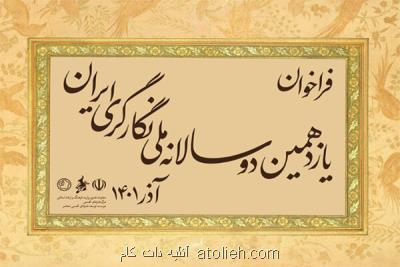 فراخوان
یازدهمین دوسالانه ملی نگارگری ایران
آذر ۱۴۰۱
آتلیه دات کام atolieh.com